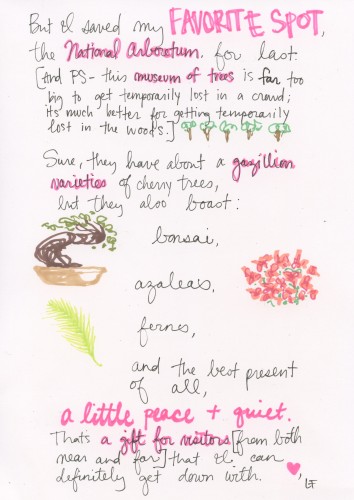 But I saved my FAVORITE SPOT,
the National Arboretum, for last.
[And PS- this museum of trees is far too
big to get temporarily lost in a crowd;
it's much better for getting temporarily
lost in the woods.]
Sure, they have about a gazillion
varieties of cherry trees,
but they also boast:
bonsai,
azaleas,
fernes,
and the best present
of all,
a little peace + quiet.
That's a gift for visitors [from both
near and far] that I can
definitely get down with.
LF